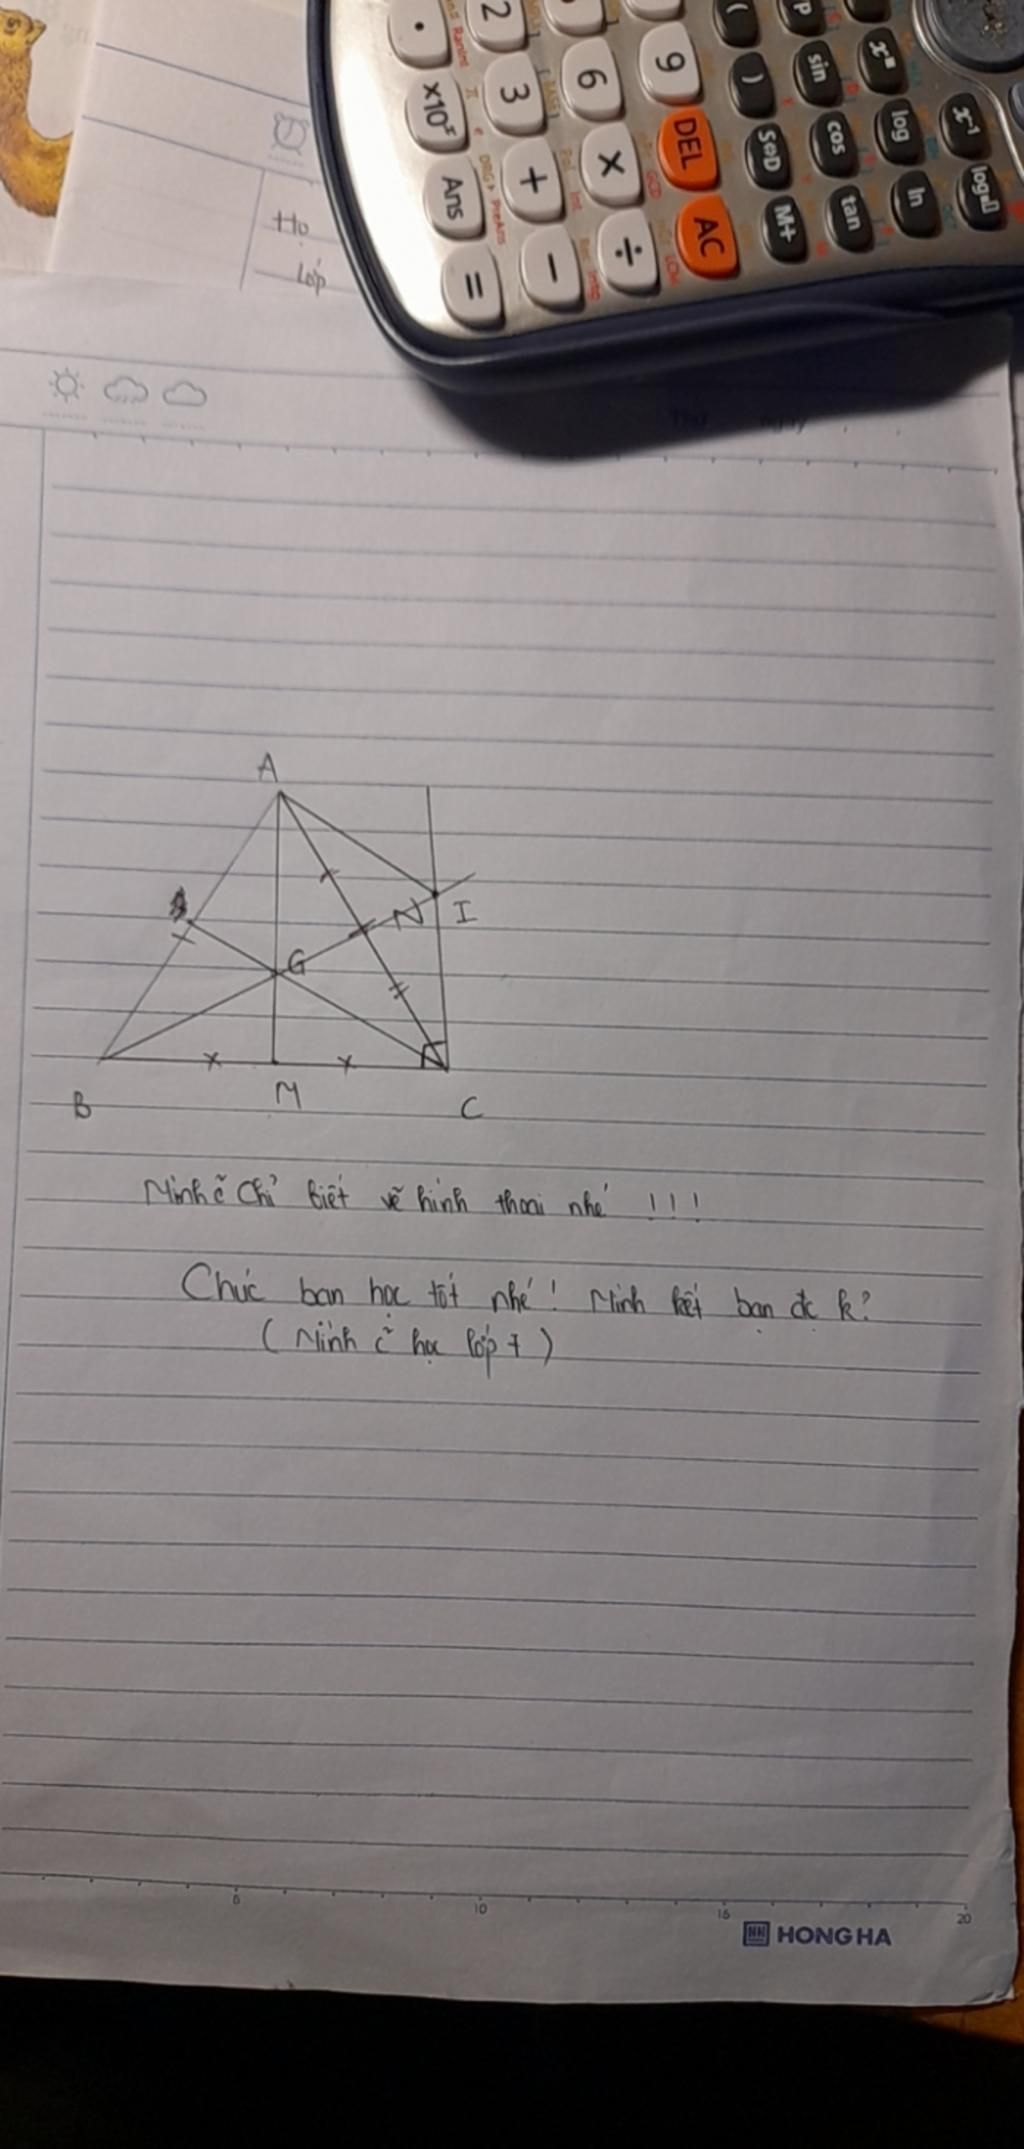 .
2
3
6
9
(
)
sin
xⁿ
x10ˣ
Ans
=
+
−
×
÷
DEL
AC
S⇔D
M+
cos
tan
log
ln
x⁻¹
Họ
Lớp
A
N
I
G
B
M
C
chỉ biết vẽ hình thoai nhé !!!
Chúc bạn học tốt nhé! Mình kết bạn đc k?
( Mình học lớp 7 )
6
10
15
20
HH HONG HA